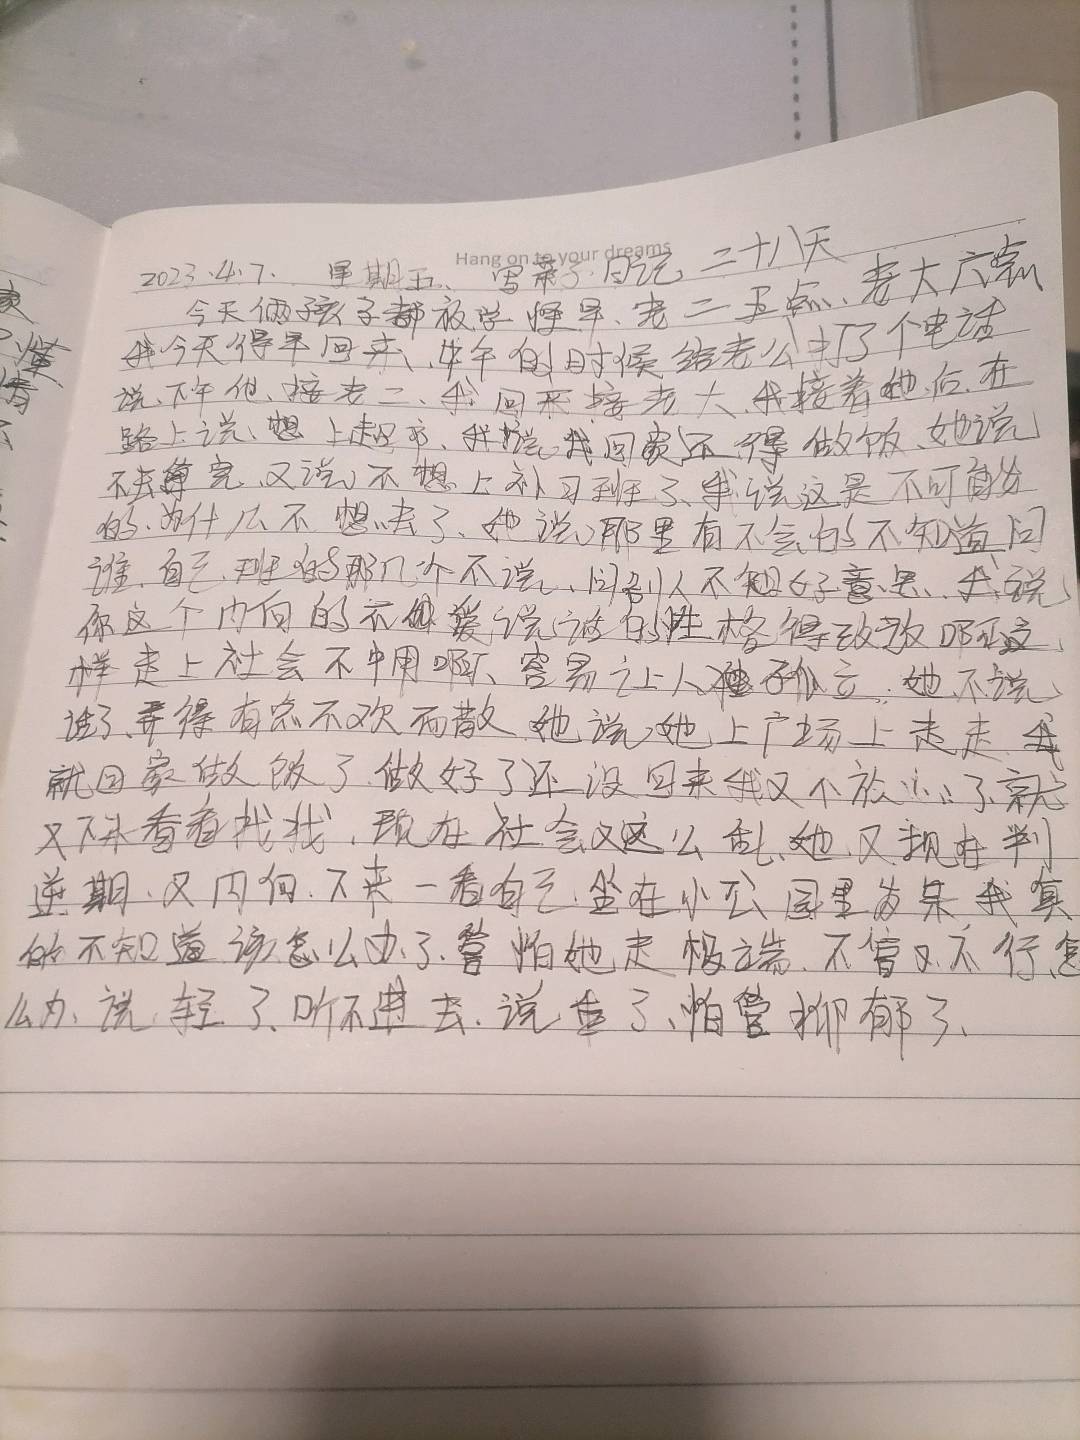 Hang on to your dreams
2023.4.7. 星期五、写亲子日记 二十八天
今天俩孩子都放学怪早、老二五点、老大六点
我今天得早回来、中午的时候给老公打了个电话
说、下午他、接老二、我回来接老大、我接着她后、在
路上说、想上超市、我说我回家还得做饭、她说
不去算完、又说、不想上补习班了、我说这是不可能
的、为什么不想去了、她说、那里有不会的不知道问
谁、自己班的那几个不说、问别人不好意思、我说
你这个内向的不爱说话的性格得改改啊这
样走上社会不中用啊、容易让人孤立、她不说
话了、弄得有点不欢而散、她说她上广场上走走、我
就回家做饭了、做好了还没回来我又不放心了、就
又下来看看找找、现在社会又这么乱、她又现在判
逆期、又内向、下来一看自己坐在小公园里发呆、我真
的不知道该怎么办了、管怕她走极端、不管又不行、怎
么办、说轻了、听不进去、说重了、怕管抑郁了、
家
懂
情